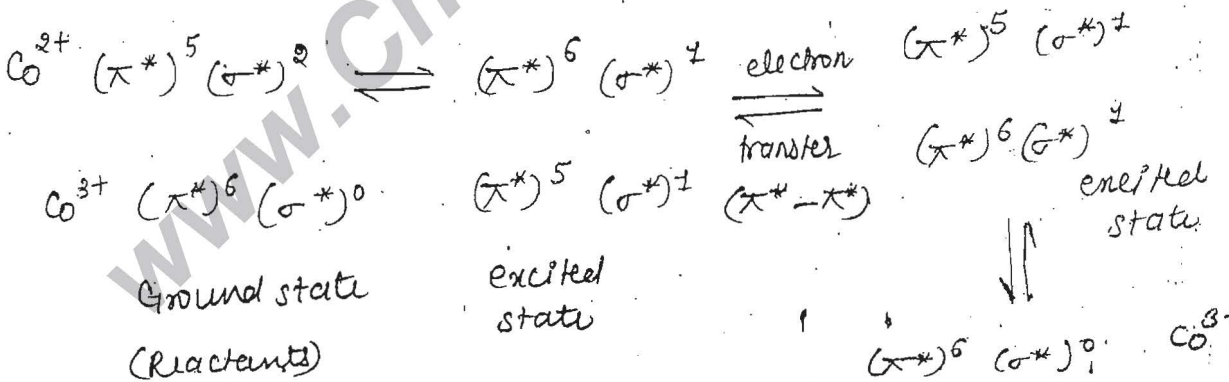 Co²⁺ (π*)⁵ (σ*)² ⇌ (π*)⁶ (σ*)¹ electron transfer ⇌ (π*)⁵ (σ*)¹
Co³⁺ (π*)⁶ (σ*)⁰ (π*)⁵ (σ*)¹ (π* – π*) (π*)⁶ (σ*)¹
Ground state
(Reactants)
excited
state
excited
state
⇌
(π*)⁶ (σ*)⁰ Co³
www.Ch